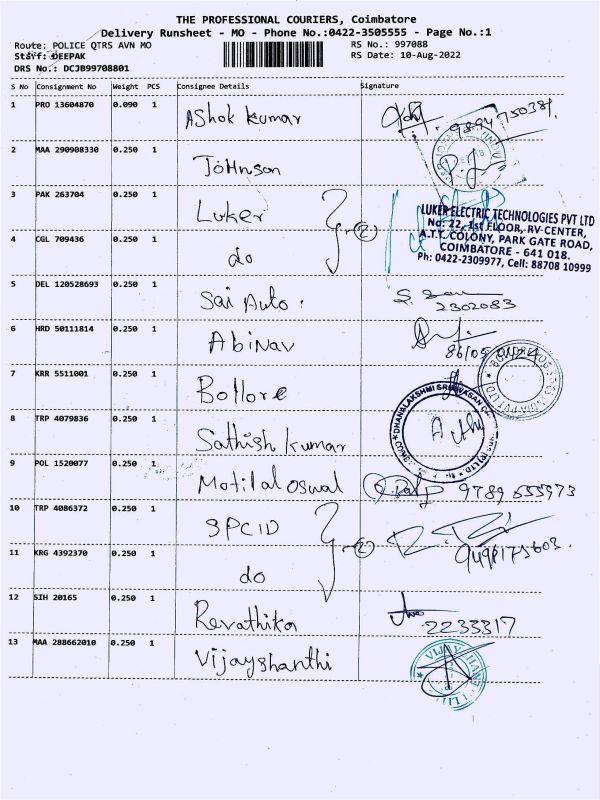 THE PROFESSIONAL COURIERS, Coimbatore
Delivery Runsheet - MO - Phone No.:0422-3505555 - Page No.:1
Route: POLICE QTRS AVN MO
RS No.: 997088
Staff: DEEPAK
RS Date: 10-Aug-2022
DRS No.: DCJB99708801
S No Consignment No Weight PCS Consignee Details Signature
1 PRO 13604870 0.090 1 Ashok kumar
2 MAA 290908330 0.250 1 Johnson
3 PAK 263704 0.250 1 Luker
LUKER ELECTRIC TECHNOLOGIES PVT LTD
No: 22, 1st FLOOR, RV CENTER,
A.T.T. COLONY, PARK GATE ROAD,
COIMBATORE - 641 018.
Ph: 0422-2309977, Cell: 88708 10999
4 CGL 709436 0.250 1 do
2
5 DEL 120528693 0.250 1 Sai Auto.
2302083
6 HRD 50111814 0.250 1 Abinav
7 KRR 5511001 0.250 1 Bollore
8 TRP 4079836 0.250 1 Sathish kumar
9 POL 1520077 0.250 1 Motilal oswal 9789 655973
10 TRP 4086372 0.250 1 SPCID
2
11 KRG 4392370 0.250 1 do
12 SIH 20165 0.250 1 Revathika
2233317
13 MAA 288662010 0.250 1 Vijayshanthi